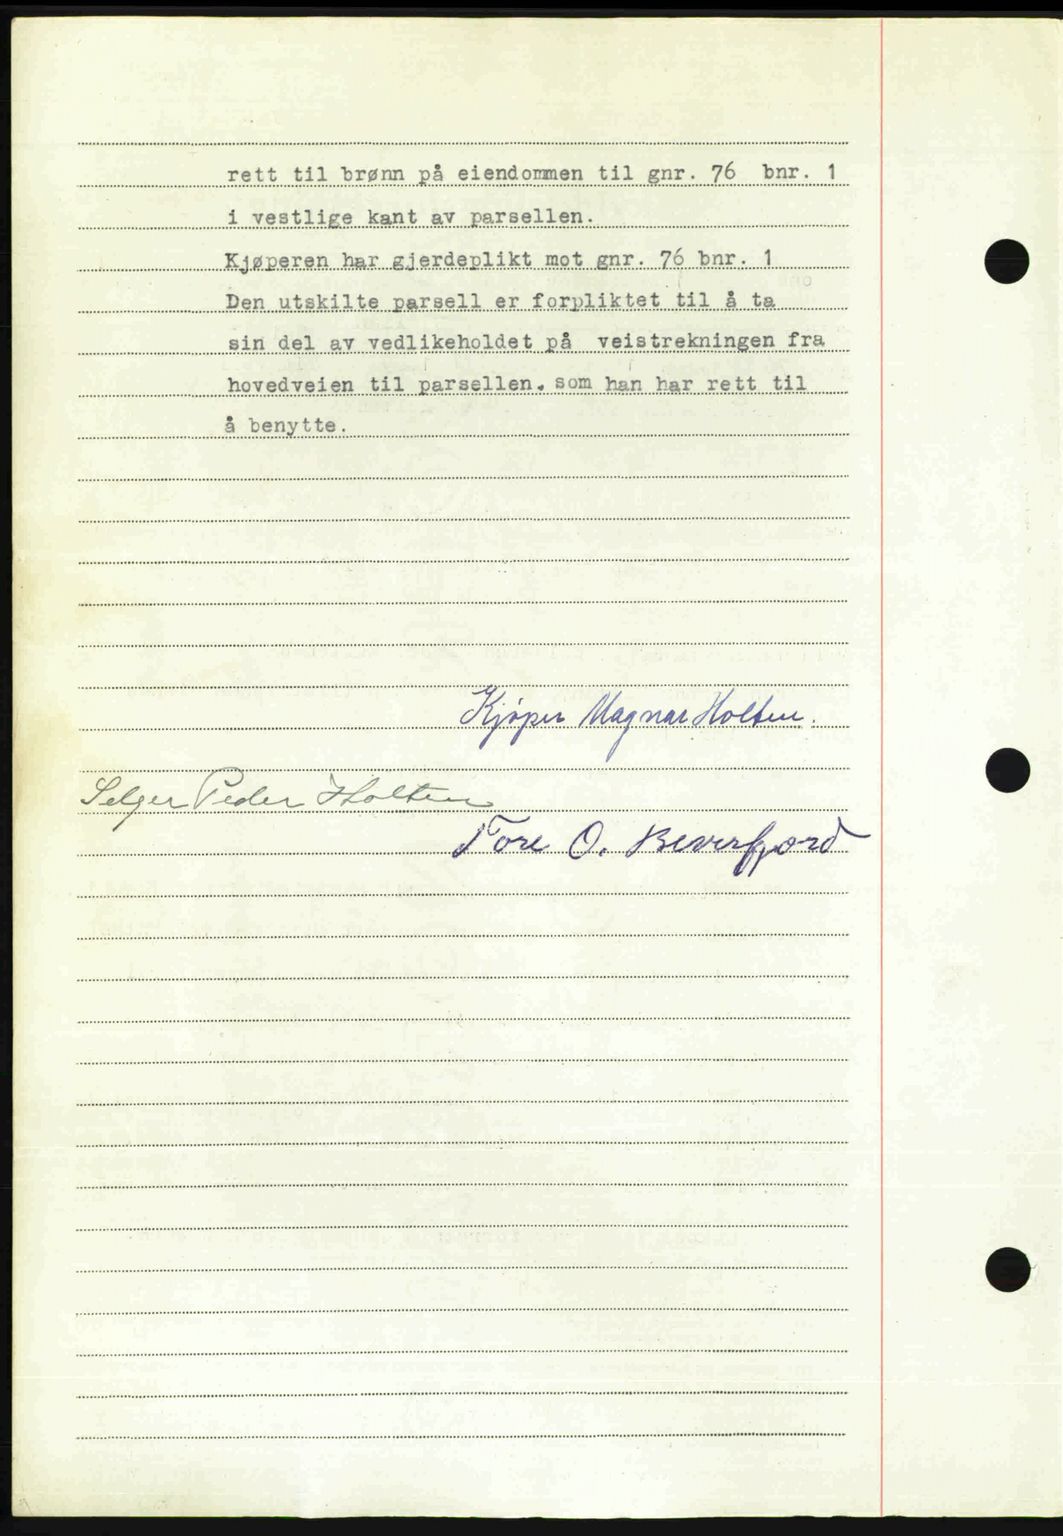 rett til brønn på eiendommen til gnr. 76 bnr. 1
i vestlige kant av parsellen.
Kjøperen har gjerdeplikt mot gnr. 76 bnr. 1
Den utskilte parsell er forpliktet til å ta
sin del av vedlikeholdet på veistrekningen fra
hovedveien til parsellen. som han har rett til
å benytte.
Kjøper Magnar Holten.
Selger Peder Holten
Tore O. Beverfjord